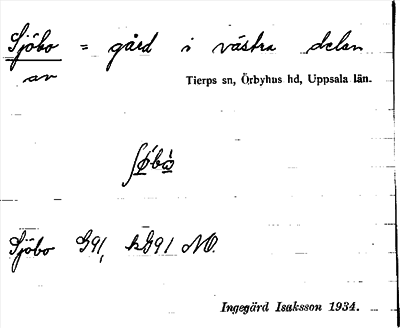 Sjöbo = gård i västra delen
av
Tierps sn, Örbyhus hd, Uppsala län.
ʃǿbò
Sjöbo G91, kG91 NO.
Ingegärd Isaksson 1934.